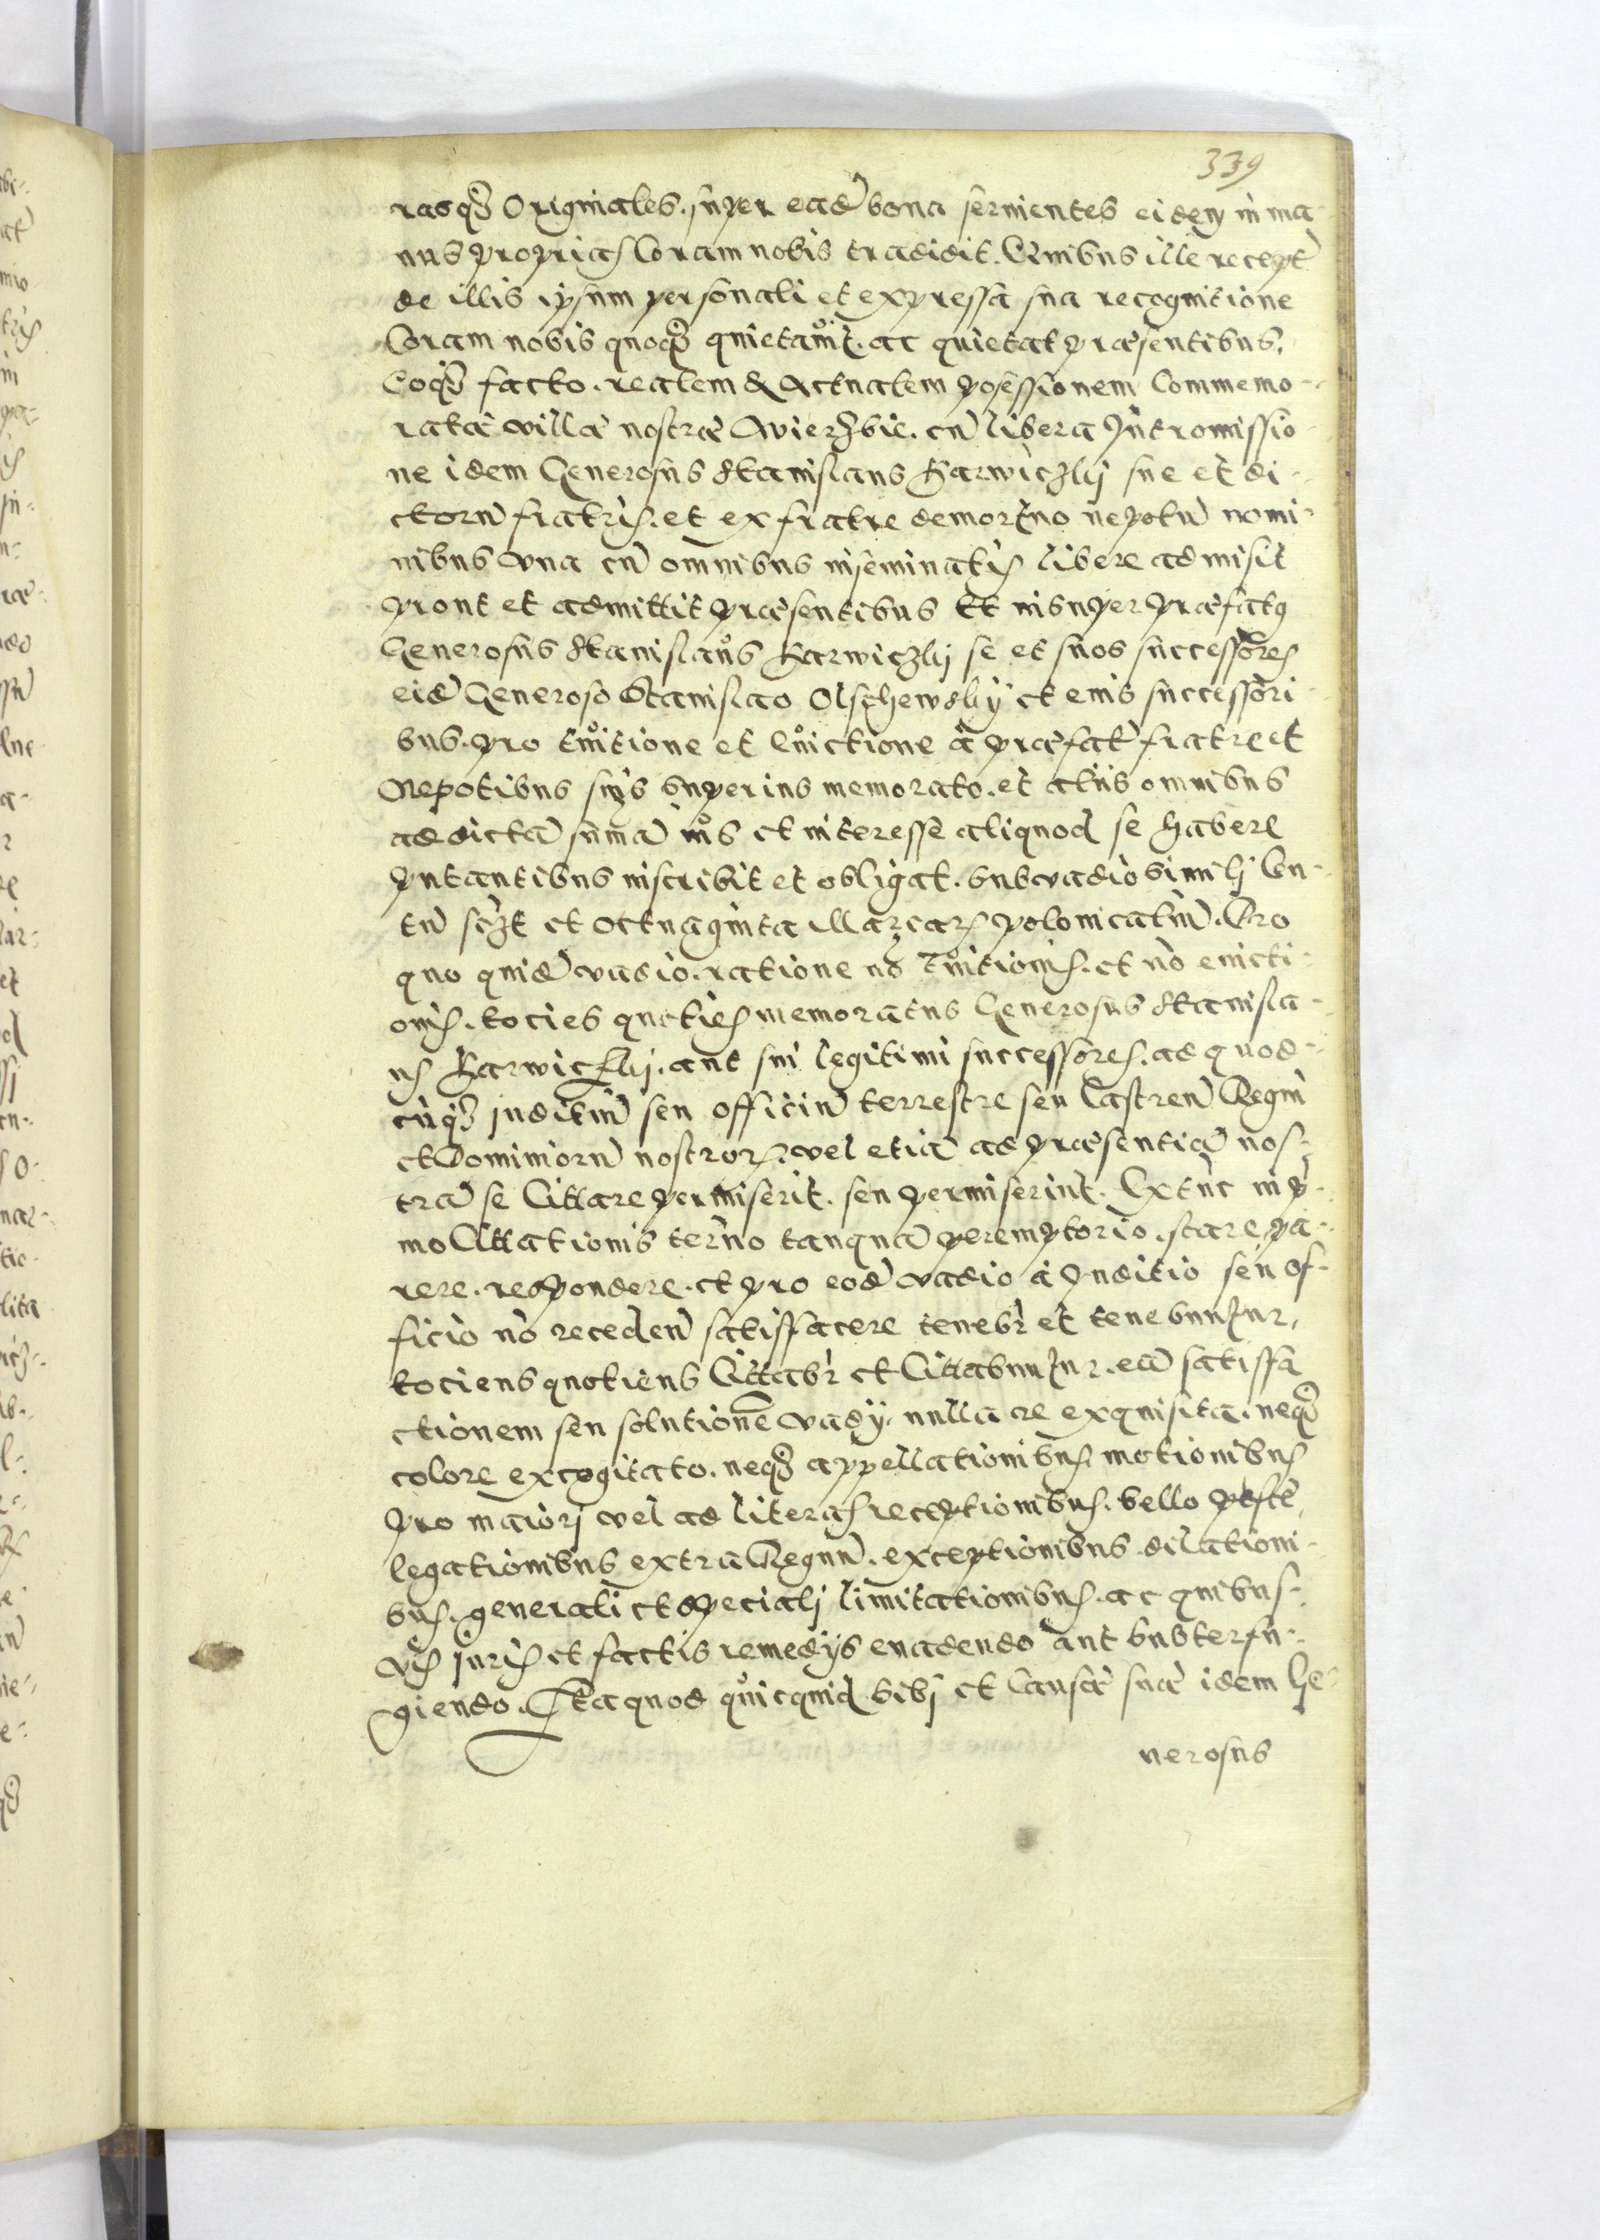 339
rasq₃ Originales. super eadē bona servientes eidem in ma-
nus proprias Coram nobis tradidit. Quibus ille recept
de illis ipsum personali et expressa sua recognitione
Coram nobis quoq₃ quietavit. ac quietat præsentibus,
Eoq₃ facto. realem & Actualem possessionem Commemo-
ratæ villæ nostræ Wierzbie. cū libera Intromissio-
ne idem Generosus Stanislaus Karwiczkj sue et di-
ctorū fratris. et ex fratre demortuo nepotū nomi-
nibus vna cū omnibus inseminatis libere admisit
prout et admittit præsentibus Et insuper præfatus
Generosus Stanislaus Karwiczkj se et suos successores
eidē Generoso Stanislao Olschewskij et eius successori-
bus. pro tuitione et euictione à præfat fratre et
Nepotibus suis superius memorato. et aliis omnibus
ad dictā summā ius et interesse aliquod se habere
putantibus inscribit et obligat. sub vadio simili Cen-
tū sczt et octuaginta Marcarum polonicaliū. Pro
quo quidē vadio. ratione nō tuitionis. et nō euicti-
onis. toties quoties memoratus Generosus Stanisla-
us Karwiczkj. aut sui legitimi successores. ad quod-
cūq₃ Juditiū seu officiū terrestre seu Castren Regni
et Dominiorū nostrorum. vel etiā ad præsentiā nos-
trā se Cittare permiserit. seu permiserint. Extūc in p-
mo Cittationis termino tanquā peremptorio. stare pa-
rere. respondere. et pro eodē vadio à Juditio seu of-
ficio nō recedeñ satisfacere tenebr et tenebuntur,
tociens quotiens Cittabr et Cittabuntur. eā satisfa-
ctionem seu solutionē vadij. nulla re exquisita. neq₃
colore excogitato. neq₃ appellationibus motionibus
pro maiori vel ad literas receptionibus. bello peste,
legationibus extra Regnū. exceptionibus dilationi-
bus. generali et speciali limitationibus. ac quibus-
vis juris et factis remedijs euadendo aut subterfu-
giendo. Ita quod quicquid sibi et Causæ suæ idem Ge-
nerosus